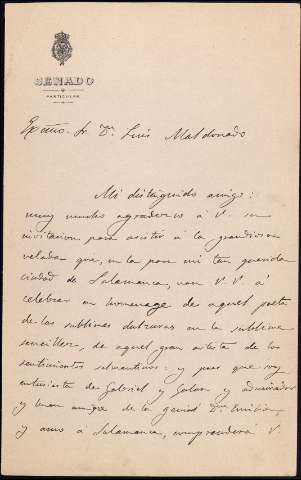 SENADO
PARTICULAR
Excmo. Sr. Dn. Luis Maldonado
Mi distinguido amigo:
muy mucho agradezco á V. su
invitacion para asistir á la grandiosa
velada que, en la para mi tan querida
ciudad de Salamanca, van V.V. á
celebrar en homenage de aquel poeta
de las sublimes dulzuras en la sublime
sencillez, de aquel gran artista de los
sentimientos selvanticos: y pues que soy
entusiasta de Gabriel y Galan, y admirador
y buen amigo de la genial Dª Emilia,
y amo á Salamanca, comprenderá V.